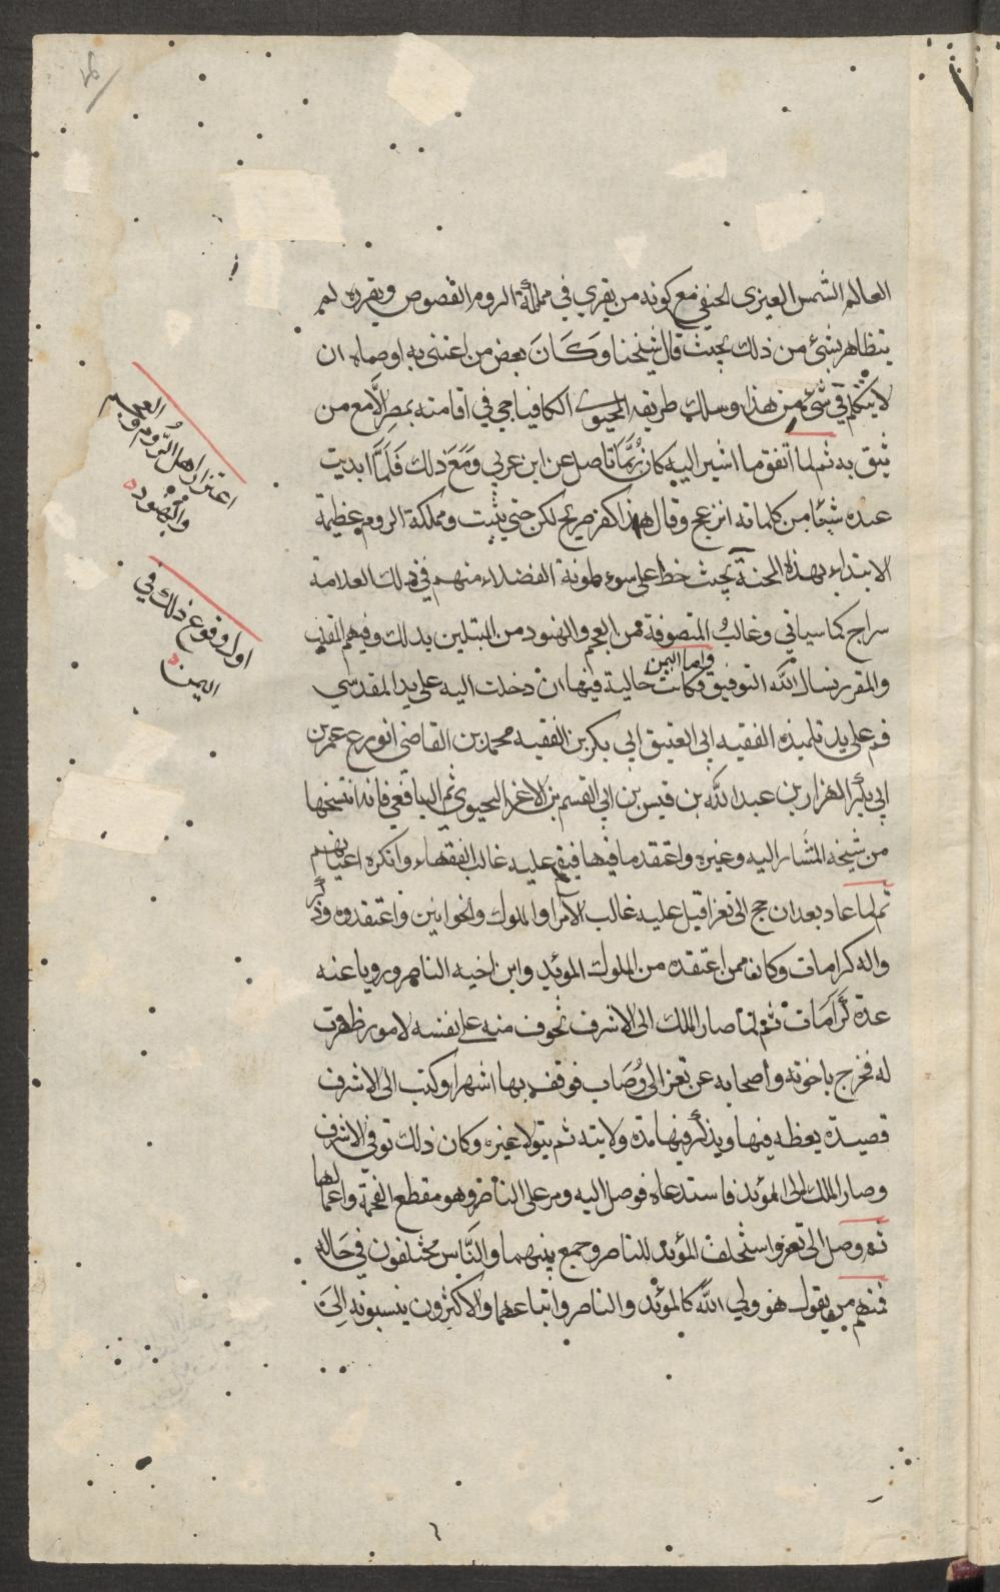 العالم الشمس العيزري الحنفي مع كونه من يقري في مملكة الروم الفصوص ويقرره لم
يتظاهر بشيء من ذلك بحيث قال شيخنا وكان بعض من اعتنى به اوصاه ان
لا يتكلم في شيء من هذا وسلك طريقه المحيوي الكافياجي في اقامته بمصر الامع من
يثق به ثم لما اتفق وما اشير اليه كان ربما ناضل عن ابن عربي ومع ذلك فلما ابديت
عنده شيئا من كلماته انزعج وقال هذا كفر صريح لكن حتى يثبت ومملكة الروم عظيمة
الابتداء بهذه المحنة بحيث خط على سوء طوية الفضلاء منهم في ذلك العلامة
سراج كما سياتي وغالب المتصوفة من العجم والهنود من المبتلين بذلك وفيهم المقلد
والمقرر نسال الله التوفيق واما اليمن فكانت خالية فيها ان دخلت اليه على يد المقدسي
ثم على يد تلميذه الفقيه ابي العتيق ابي بكر بن الفقيه محمد بن القاضي عمر بن
ابي بكر الهزار بن عبد الله بن قيس بن ابي القسم بن الاغر اليحيوي ثم اليافعي فانه انتسخها
من شيخه المشار اليه وغيره واعتقد ما فيها فبقي عليه غالب الفقهاء وانكره اعيانهم
ثم لما عاد بعد ان حج الى تعز اقبل عليه غالب الامرا والملوك والخواتين واعتقدوه وذكر
واله كرامات وكان ممن اعتقده من الملوك المؤيد وابن اخيه الناصر ورويا عنه
عدة كرامات ثم لما صار الملك الى الاشرف تخوف منه على نفسه لامور ظهرت
له فخرج باخوته واصحابه عن تعز الى وصاب فوقف بها اشهرا وكتب الى الاشرف
قصيدة يعظه فيها ويذكر فيها مدة ولايته ثم يتولا غيره وكان ذلك توفي الاشرف
وصار الملك الى المؤيد فاستدعاه فوصل اليه ومر على الناصر وهو مقطع القحمة واعمالها
ثم وصل الى تعز واستحلف المؤيد للناصر وجمع بينهما والناس مختلفون في حاله
فمنهم من يقول هو ولي الله كالمؤيد والناصر واتباعهما والاكثرون ينسبونه الى
اعتزار اهل الروم والعجم
والهنود
اول وقوع ذلك في
اليمن